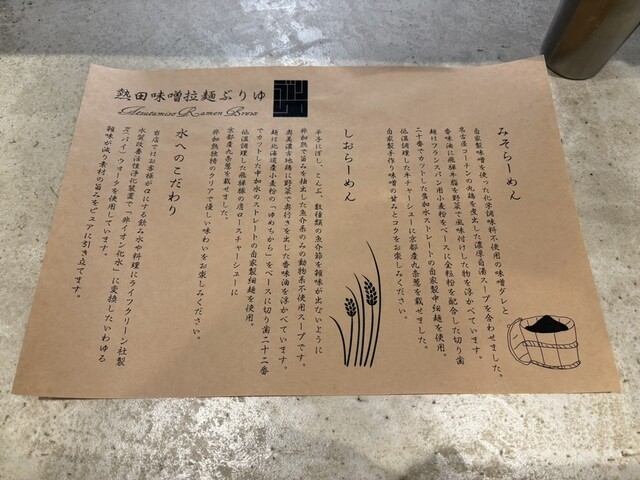 熱田味噌拉麺ぶりゅ
Atsutamiso Ramen Brew
みそらーめん
自家製味噌を使った化学調味料不使用の味噌ダレと
名古屋コーチンの丸鶏を煮出した濃厚白湯スープを合わせました。
香味油に飛騨牛脂を野菜で風味付けした物を浮かべています。
麺はフランスパン用小麦粉をベースに全粒粉を配合した切り歯
二十番でカットした多加水ストレートの自家製中細麺を使用。
低温調理した牛チャーシューに京都産九条葱を載せました。
自家製手作り味噌の甘みとコクをお楽しみください。
しおらーめん
平子にぼし、こんぶ、数種類の魚介節を雑味が出ないように
非加熱で旨みを抽出した魚介系のみの動物系不使用スープです。
奥美濃古地鶏に野菜で奥行きを出した香味油を浮かべています。
麺は北海道産小麦粉の「ゆめちから」をベースに切り歯二十二番
でカットした中加水のストレートの自家製細麺を使用。
低温調理した飛騨豚の

ローストチャーシューに
京都産九条葱を載せました。
非加熱独特のクリアで優しい味わいをお楽しみください。
水へのこだわり
当店ではお客様が口にする飲み水や料理にライフクリーン社製
水質改善活性浄化装置で「非イオン化水」に変換したいわゆる
π(パイ)ウォータを使用しています。
雑味が減り素材の旨みをピュアに引き立てます。